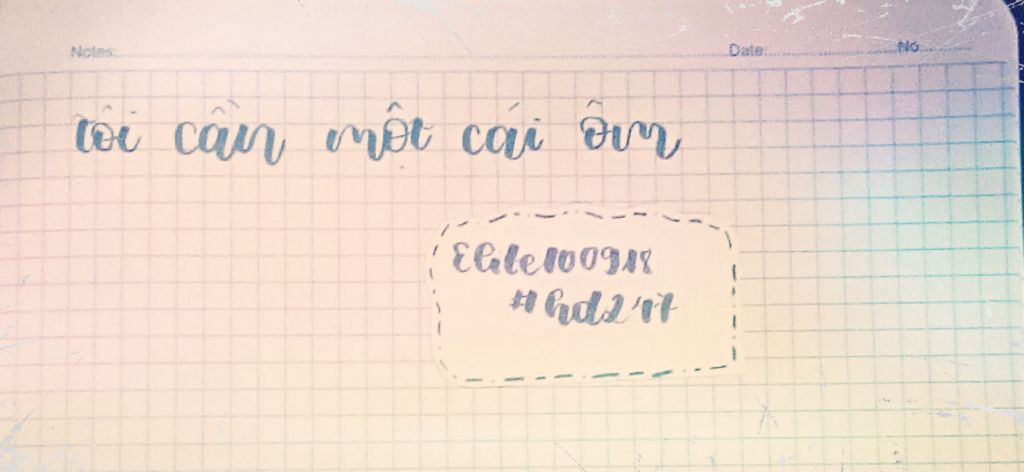 Notes: Date: No
tôi cần một cái ôm
#hd2'17